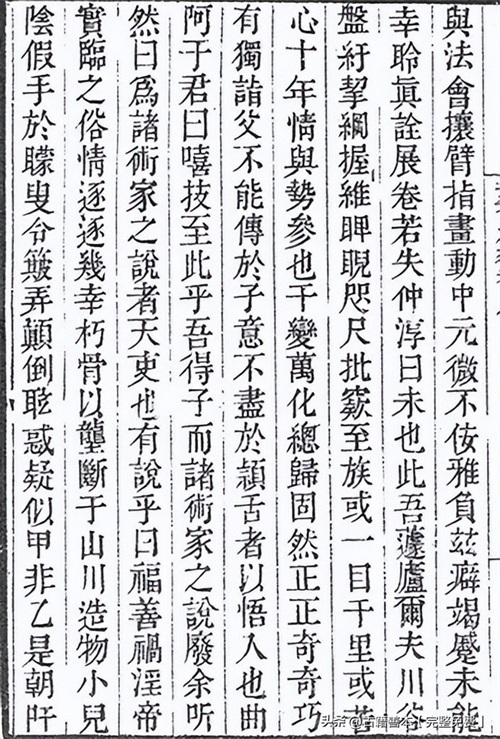 與法會攘臂指畫動中元微不佞雅負玆癖竭蹷未能
幸聆眞詮展卷若失仲淳曰未也此吾蘧廬爾夫川谷
盤紆挈綱握維睥睨咫尺批窾至族或一目千里或苦
心十年情與勢參也千變萬化總歸固然正正奇奇巧
有獨詣父不能傳於子意不盡於頴舌者以悟入也曲
阿于君曰嘻技至此乎吾得子而諸術家之說廢余听
然曰爲諸術家之說者天吏也有說乎曰福善禍淫帝
實臨之俗情逐逐幾幸朽骨以壟斷于山川造物小兒
陰假手於矇叟令簸弄顛倒眩惑疑似甲非乙是朝阡
头条@古籍善本「完整免费」